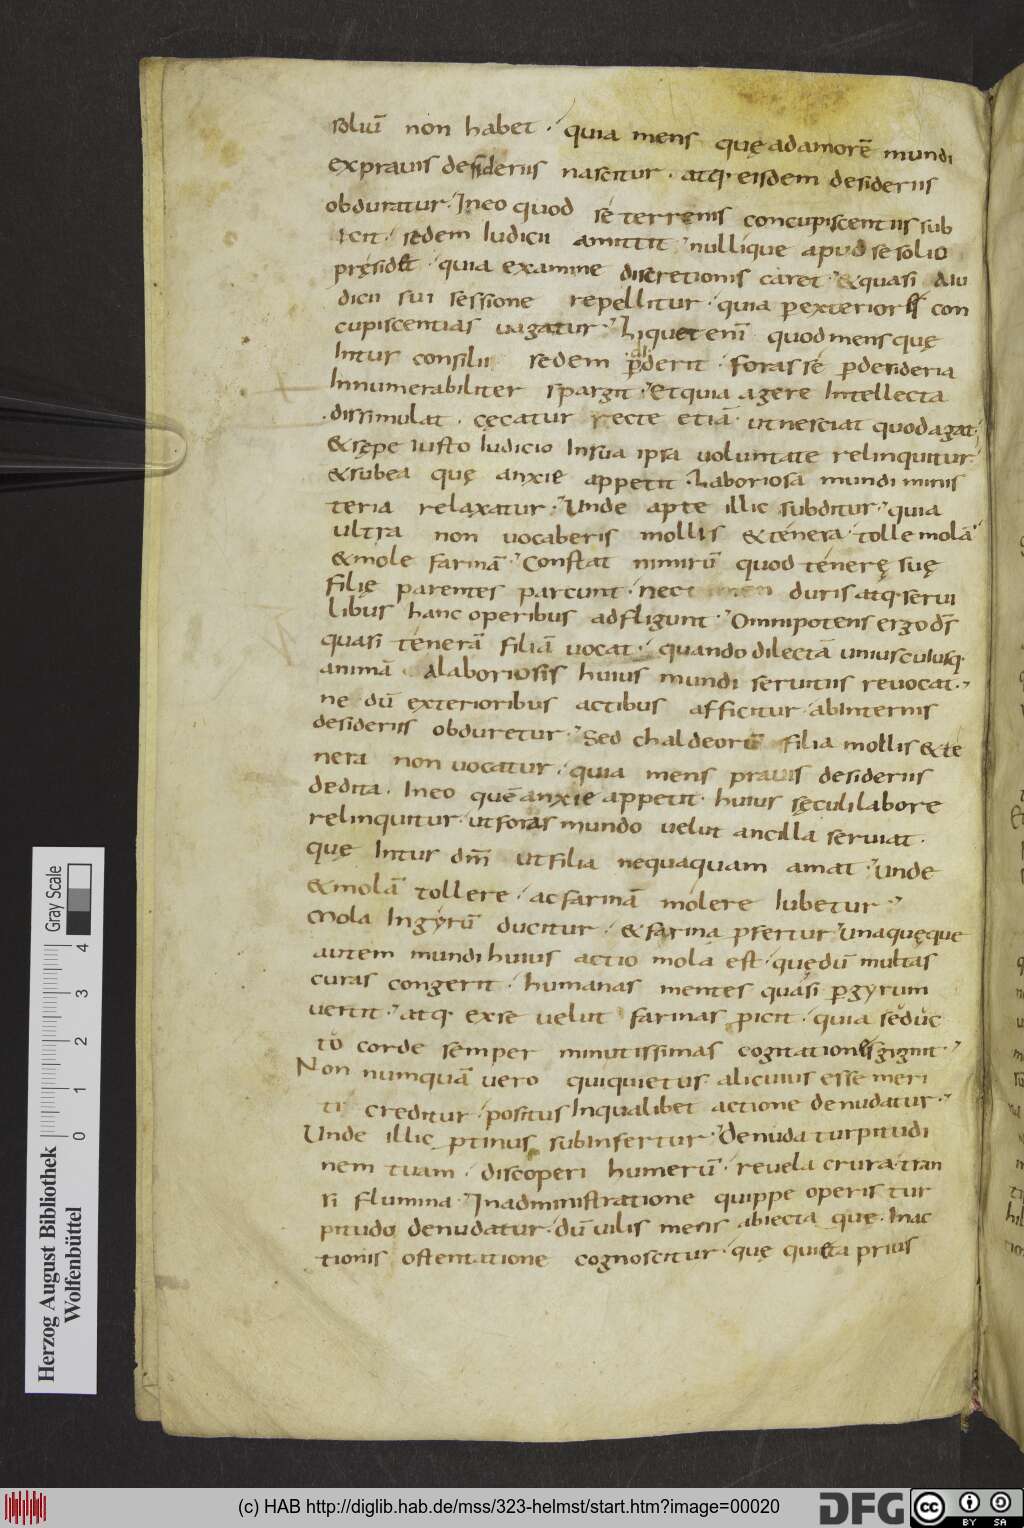 soliū non habet · quia mens quę adamorē mundi
expravis desideriis nascitur · atq· eisdem desideriis
obduratur · Ineo quod se terrenis concupiscentiis sub
icit · sedem Iudicii amittit · nullique apud se solio
pręsidet · quia examine discretionis caret · &quasi a Iu
dicii sui sessione repellitur · quia p exteriores con
cupiscentias vagatur · Liquet enī quod mens quę
Intus consilii sedem pdiderit · foras se p desideria
Innumerabiliter spargit · Et quia agere Intellecta
dissimulat · cęcatur recte etiā · ut nesciat quod agat ·
&sępe iusto Iudicio Insua ipsa voluntate relinquitur ·
&subea quę anxie appetit · Laboriosa mundi minis
teria relaxatur · Unde apte illic subditur · quia
ultra non vocaberis mollis &tenera · tolle molā
&mole farinā · Constat nimirū quod tenerę suę
filię parentes parcunt · nec duris atq· servi
libus hanc operibus adfligunt · Omnipotens ergo ds̄
quasi tenerā filiā vocat · quando dilectā uniuscuiusq·
animā a laboriosis huius mundi servitiis revocat ·
ne dū exterioribus actibus afficitur ab internis
desideriis obduretur · Sed chaldeorū filia mollis &te
nera non vocatur · quia mens pravis desideriis
dedita · Ineo quē anxie appetit · huius sęculi labore
relinquitur · ut foras mundo velut ancilla serviat ·
quę Intus dm̄ ut filia nequaquam amat · Unde
&molā tollere · ac farinā molere Iubetur ·
Mola Ingyrū ducitur · &farina pfertur · Unaquęque
autem mundi huius actio mola est · quę dū multas
curas congerit · humanas mentes quasi p gyrum
vertit · atq· ex se velut farinas picit · quia seduc
to corde semper minutissimas cogitationes gignit ·
Non numquā vero qui quietus alicuius esse meri
ti creditur · positus Inqualibet actione denudatur ·
Unde illic ptinus subinfertur · Denuda turpitudi
nem tuam · discoperi humerū · revela crura · tran
si flumina · In administratione quippe operis tur
pitudo denudatur · dū vilis mens abiecta quę · Inac
tionis ostentatione cognoscitur · quę quieta prius
Herzog August Bibliothek
Wolfenbüttel
Gray Scale
0 1 2 3 4
(c) HAB http://diglib.hab.de/mss/323-helmst/start.htm?image=00020
DFG
cc BY SA